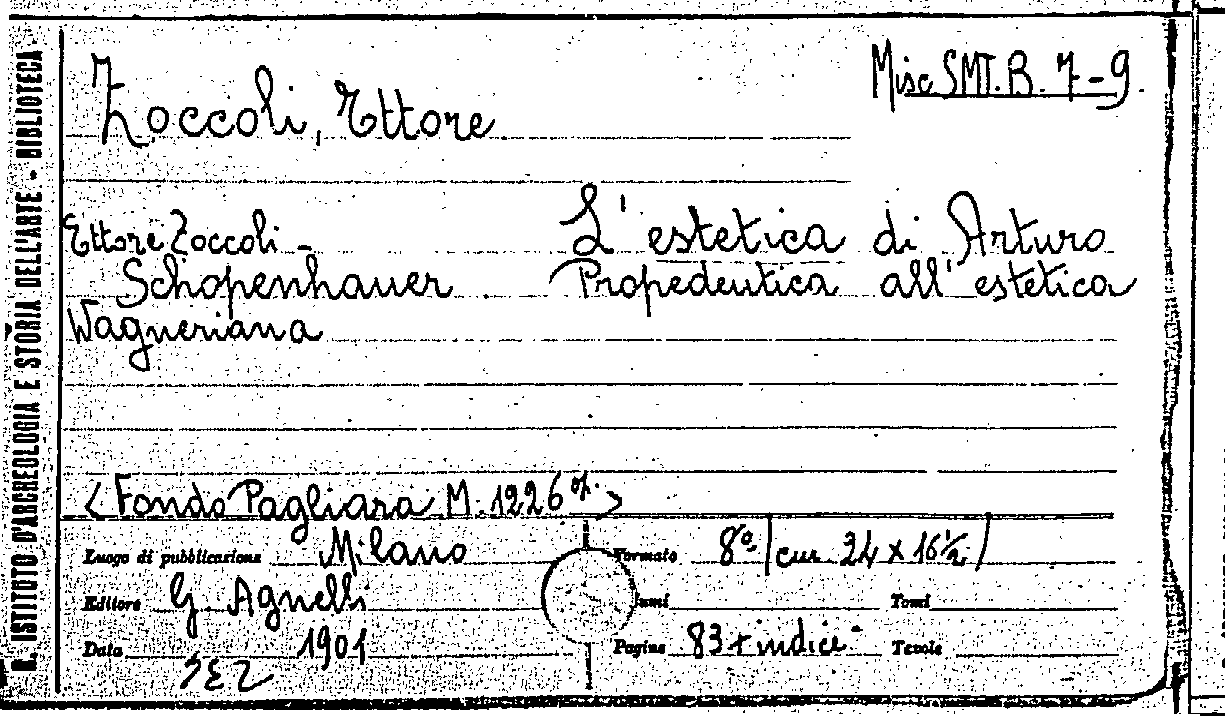 R. ISTITUTO D'ARCHEOLOGIA E STORIA DELL'ARTE - BIBLIOTECA
Misc SMT. B. 7-9.
Zoccoli, Ettore
Ettore Zoccoli - L'estetica di Arturo
Schopenhauer. Propedeutica all'estetica
Wagneriana
<Fondo Pagliara M. 1226 op.>
Luogo di pubblicazione Milano Formato 8º/cm 24 x 16½/
Editore G. Agnelli umi Tomi
Data 1901 Pagine 83 + indice Tavole